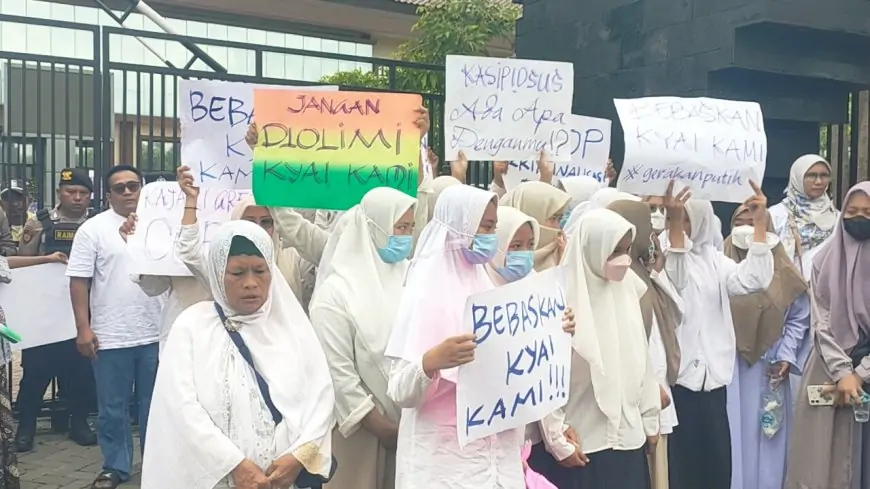 KAMI
JANGAN
DLOLIMI
KYAI KAMI
KASIPIDSUS
Ada Apa
Denganmu!?
BEBASKAN
KYAI KAMI
#gerakanputih
BEBASKAN
KYAI
KAMI!!!